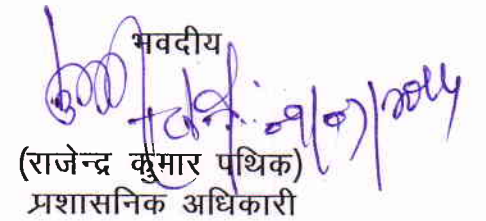 भवदीय
(राजेन्द्र कुमार पथिक)
प्रशासनिक अधिकारी